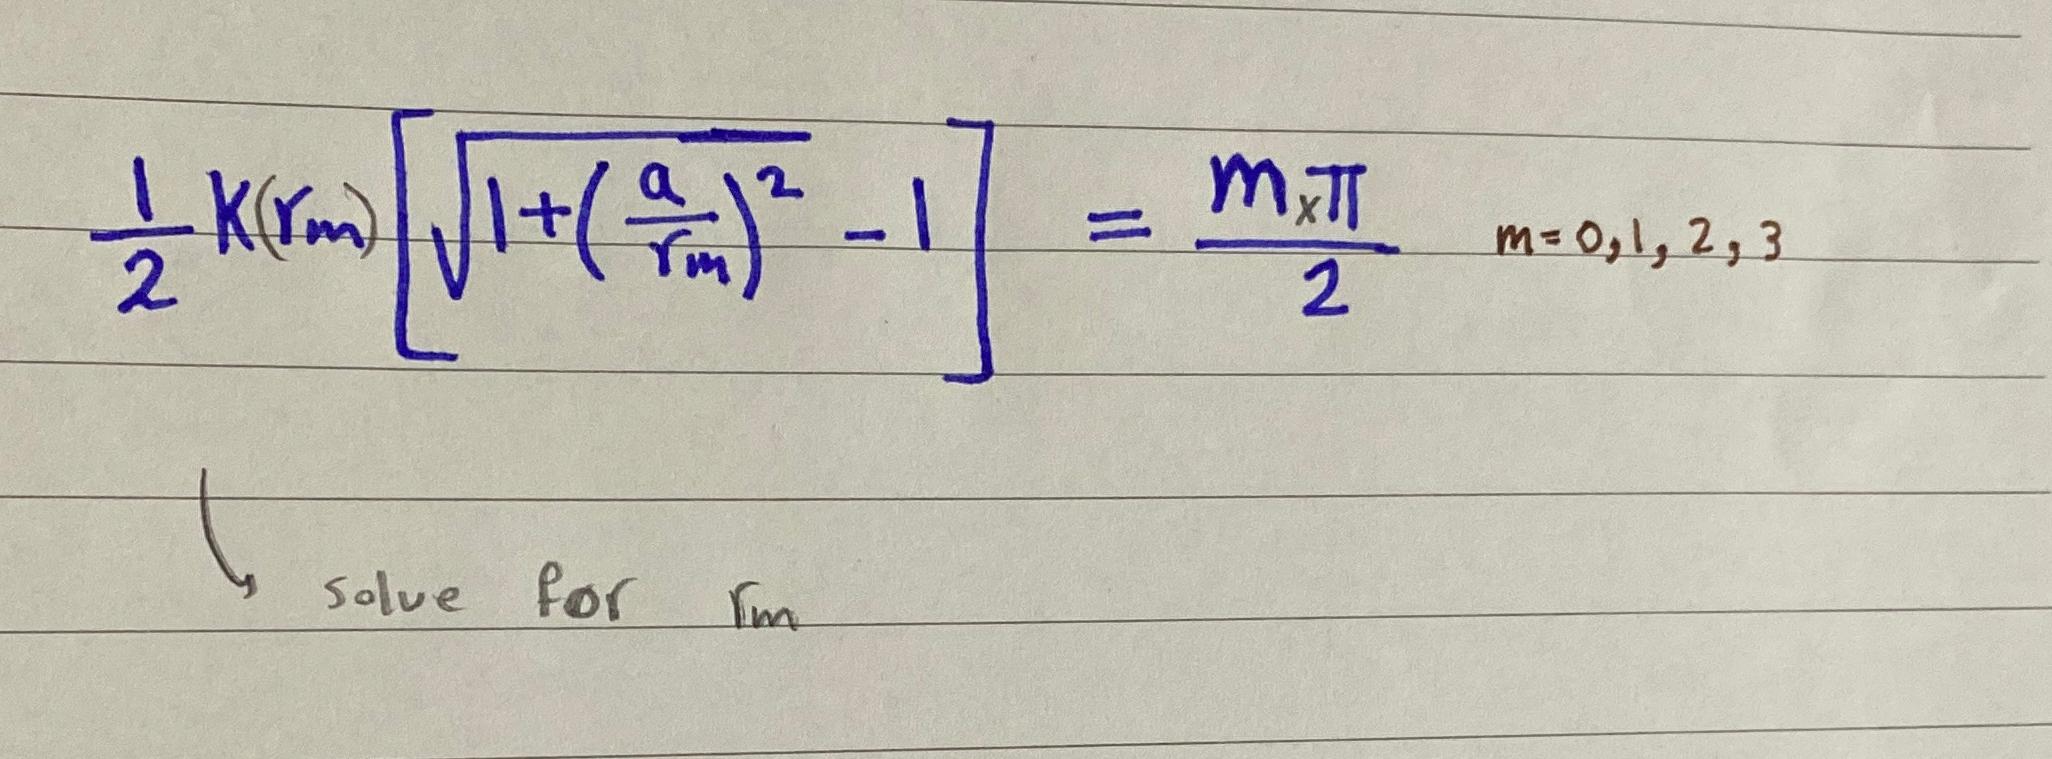 1/2 K(rm) [√(1+(a/rm)²) - 1] = m×π/2 m=0,1,2,3
solve for rm